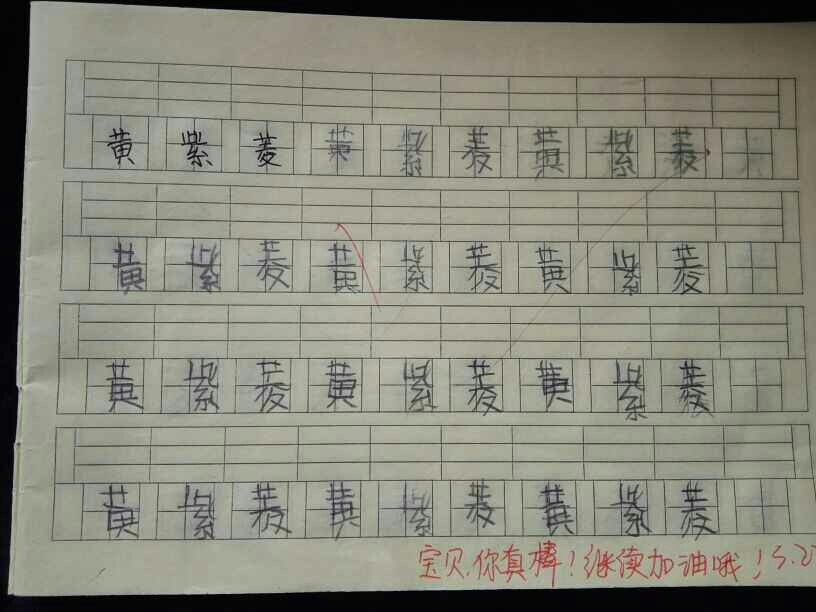 黄紫菱黄紫菱黄紫菱
黄紫菱黄紫菱黄紫菱
黄紫菱黄紫菱黄紫菱
黄紫菱黄紫菱黄紫菱
宝贝,你真棒!继续加油哦!